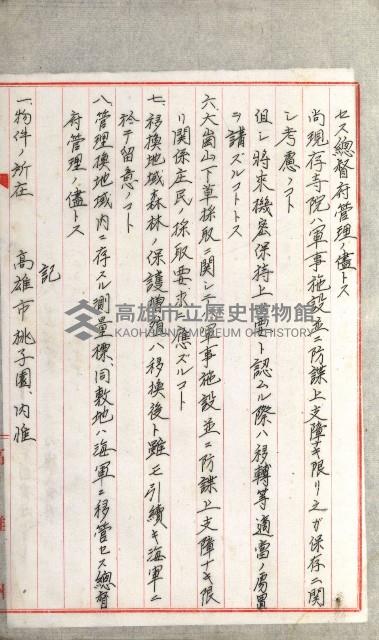 セス總督府管理ノ儘トス
尚現存寺院ハ軍事施設並ニ防諜上支障ナキ限リ之ガ保存ニ関
シ考慮ノコト
但シ将來機密保持上必要ト認ムル際ハ移轉等適當ノ處置
ヲ講ズルコトトス
六、大崗山下草採取ニ関シテハ軍事施設並ニ防諜上支障ナキ限
リ関係庄民ノ採取要求ニ應ズルコト
七、移換地域森林ノ保護増殖ハ移換後ト雖モ引續キ海軍ニ
於テ留意ノコト
八、管理換地域内ニ存スル測量標、同敷地ハ海軍ニ移管セス總督
府管理ノ儘トス
記
一、物件ノ所在 高雄市桃子園、内惟
高雄市立歷史博物館
KAOHSIUNG MUSEUM OF HISTORY
高雄州